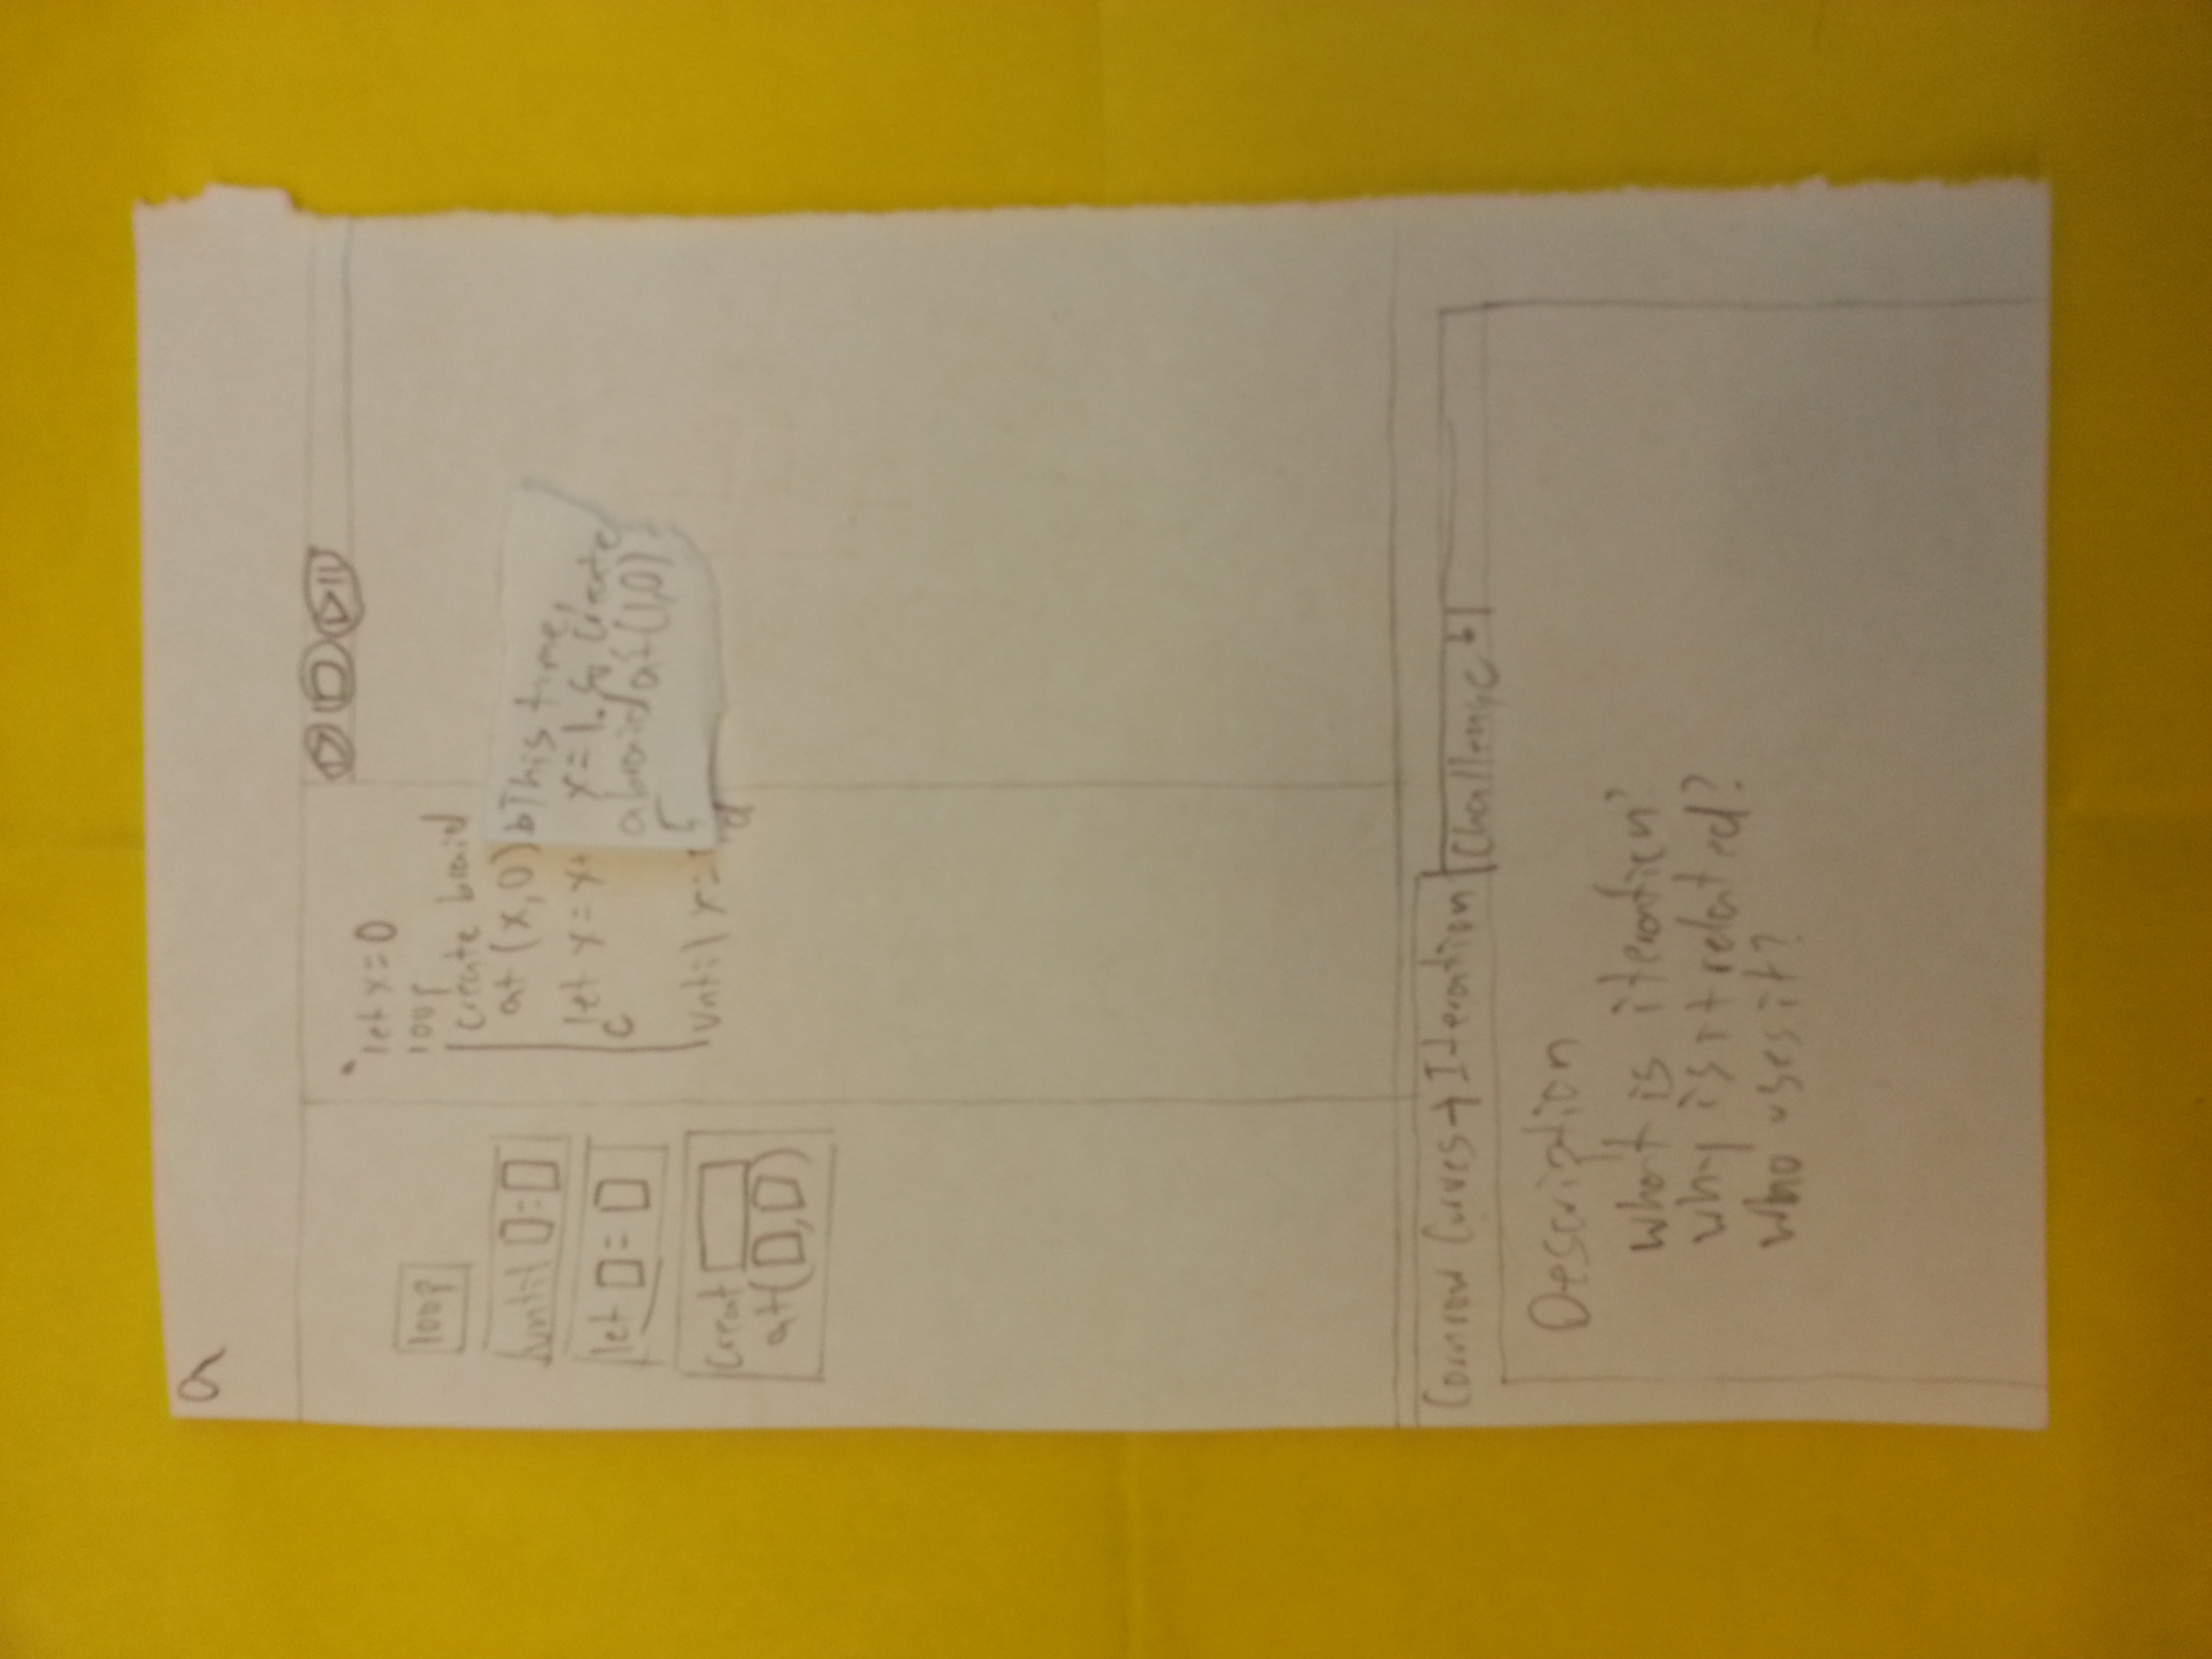 a
loop
until □=□
let □=□
Creat
at(□,□)
let x=0
loop
create braid
at (x,0)
let x = x+
c
until x=
d
bThis time,
x=1. So, create
a braid at (1,0)
Cornrow Curves → Iteration
Challenge
Description
What is iteration?
Why is it related?
Who uses it?